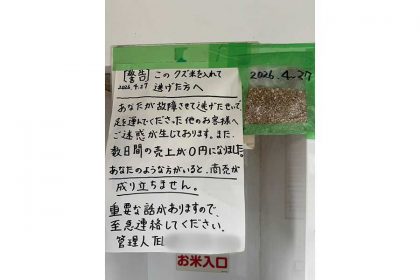 [警告] このクズ米を入れて
2026.4.27 逃げた方へ
あなたが故障させて逃げたせいで、
足を運んでくださった他のお客様へ
ご迷惑が生じております。また、
数日間の売上が0円になりました。
あなたのような方がいると、商売が
成り立ちません。
重要な話がありますので、
至急連絡してください。
管理人TEL
2026.4.27
お米入口